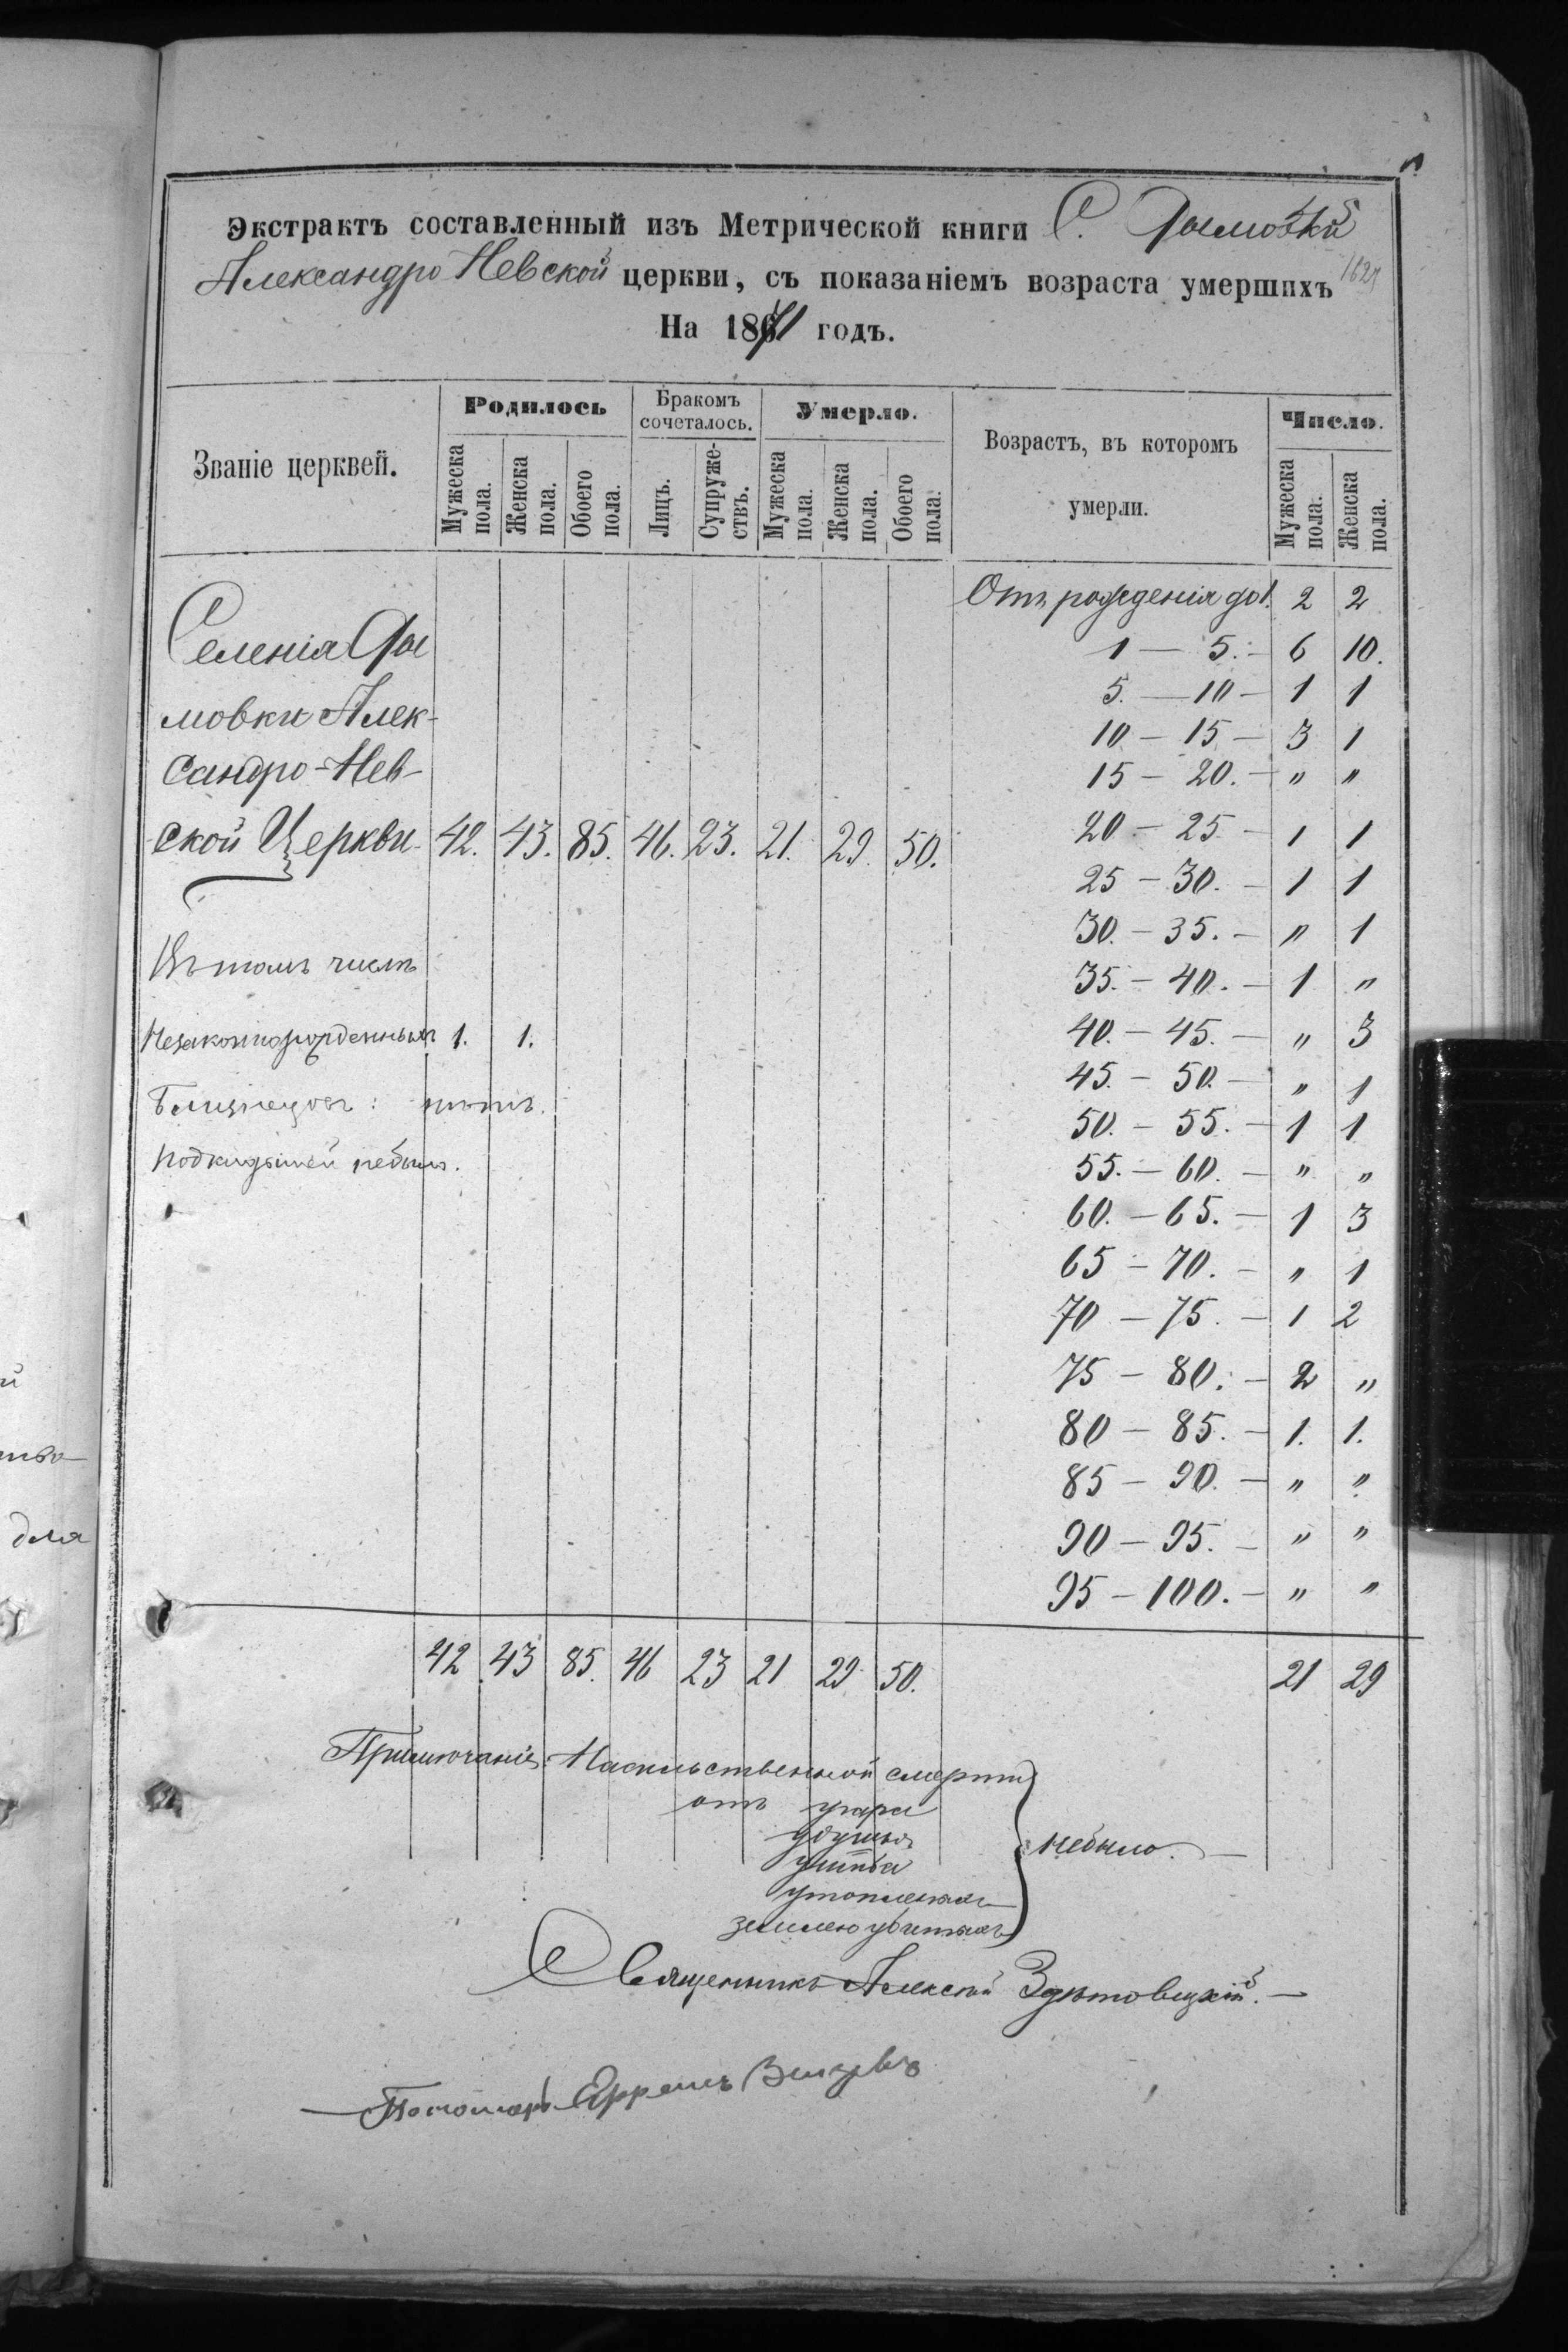 Экстрактъ составленный изъ Метрической книги С. Дымовки
Александро Невской церкви, съ показаніемъ возраста умершихъ
На 1871 годъ.
Званіе церквей.
Родилось
Бракомъ сочеталось.
Умерло.
Возрастъ, въ которомъ умерли.
Число.
Мужеска пола.
Женска пола.
Обоего пола.
Лицъ.
Супружествъ.
Мужеска пола.
Женска пола.
Обоего пола.
Мужеска пола.
Женска пола.
Селенія Ды
мовки Алек-
сандро-Нев-
ской Церкви 42. 43. 85. 46. 23. 21. 29. 50.
Въ томъ числѣ
Незаконнорожденныхъ 1. 1.
Близнецовъ: нѣтъ.
Подкидышей небыло.
Отъ рожденія до 1. 2 2
1 — 5. — 6 10.
5. — 10 — 1 1
10 — 15 — 3 1
15 — 20. — " "
20 — 25 — 1 1
25 — 30. — 1 1
30. — 35. — " 1
35. — 40. — 1 "
40. — 45. — " 3
45. — 50. — " 1
50. — 55. — 1 1
55. — 60. — " "
60. — 65. — 1 3
65 — 70. — " 1
70 — 75. — 1 2
75 — 80. — 2 "
80 — 85. — 1. 1.
85 — 90. — " "
90 — 95. — " "
95 — 100. — " "
42 43 85. 46 23 21 29 50. 21 29
Примѣчаніе: Насильственной смерти
отъ угара
удушья
ушиба
утопленія
землею убитыхъ
небыло. —
Священникъ Алексѣй
Пономарь